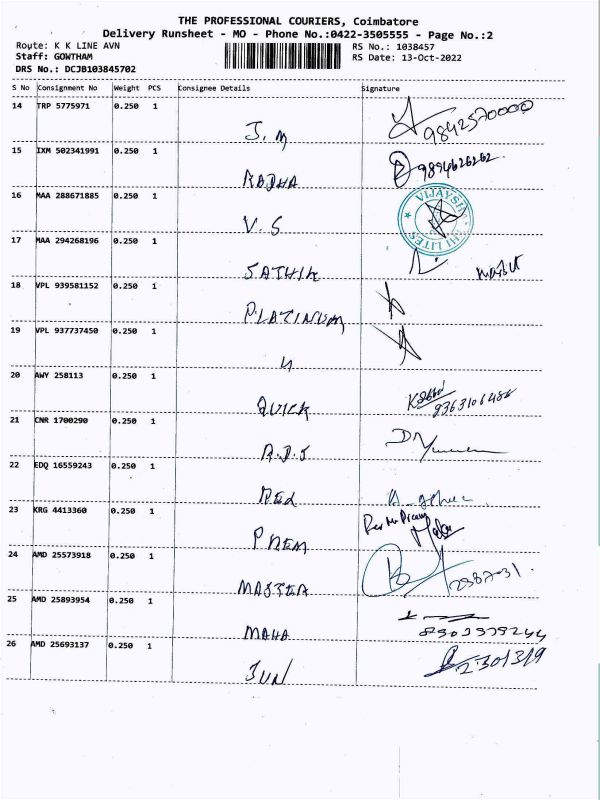 THE PROFESSIONAL COURIERS, Coimbatore
Delivery Runsheet - MO - Phone No.:0422-3505555 - Page No.:2
Route: K K LINE AVN
RS No.: 1038457
Staff: GOWTHAM
RS Date: 13-Oct-2022
DRS No.: DCJB103845702
S No Consignment No Weight PCS Consignee Details Signature
14 TRP 5775971 0.250 1
J. M 9842570000
15 IXM 502341991 0.250 1
RADHA 9894626262
16 MAA 288671885 0.250 1
V. S VIJAYSH HI LITES
17 MAA 294268196 0.250 1
SATHIK
18 VPL 939581152 0.250 1
PLATINUM
19 VPL 937737450 0.250 1
4
20 AWY 258113 0.250 1
QUICK 9363106486
21 CNR 1700290 0.250 1
R.D.S
22 EDQ 16559243 0.250 1
RED
23 KRG 4413360 0.250 1
PREM
24 AMD 25573918 0.250 1
MASTER
25 AMD 25893954 0.250 1
MAHA
26 AMD 25693137 0.250 1
SUN